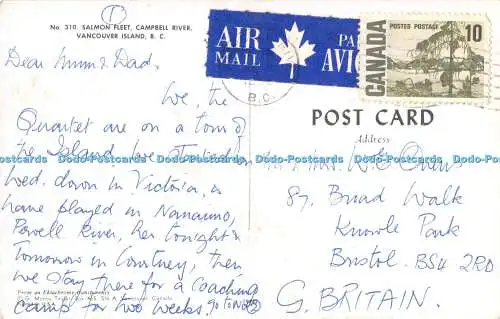 ①
No 310. SALMON FLEET, CAMPBELL RIVER,
VANCOUVER ISLAND, B. C.
Dear Mum & Dad,
We, the
Quartet are on a tour of
the Island. We started on
Wed. down in Victoria, &
have played in Nanaimo,
Powell River, here tonight &
Tomorrow in Courtney, then
we stay there for a coaching
camp for two weeks. go to No ②
AIR MAIL
PAR AVION
B.C.
CANADA
POSTES POSTAGE
10
POST CARD
Address
Mr & Mrs. W. E. Owens
87, Broad Walk
Knowle Park
Bristol. BS4 2RD
G. BRITAIN.
Dodo-Postcards Dodo-Postcards Dodo-Postcards Dodo-Postcards Dodo-Postcards Dodo-Postcards